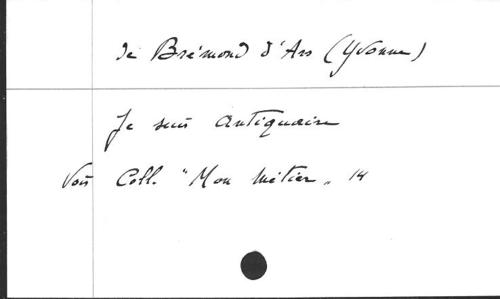 de Brémond d'Ars (Yvonne)
Je suis Antiquaire
Voir Coll. "Mon métier" 14